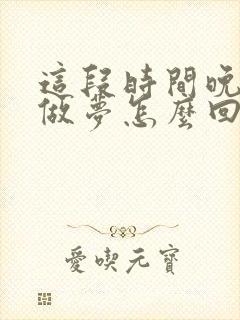 這段時間晚
做夢怎麼回
愛喫元寶